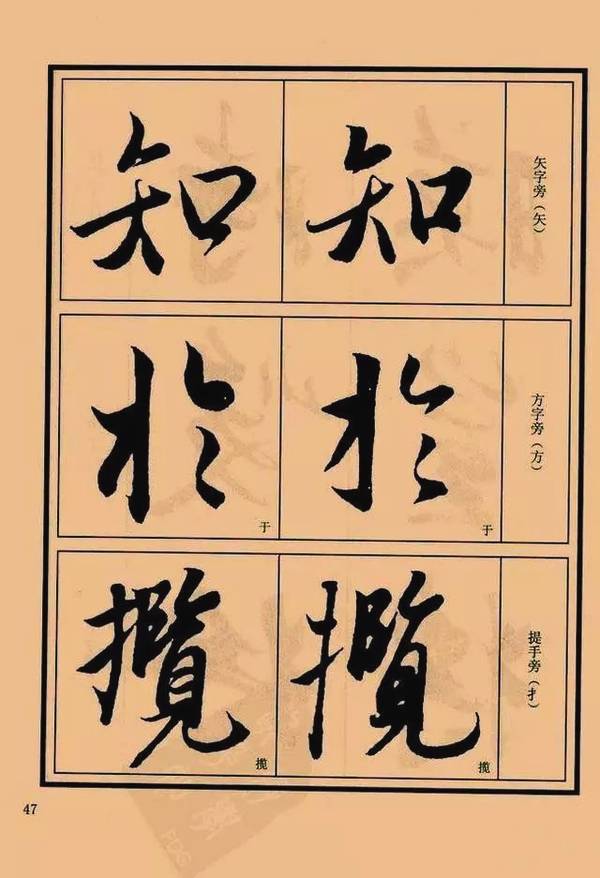 矢字旁（矢）
知
知
方字旁（方）
於
于
於
于
提手旁（扌）
攬
揽
攬
揽
47